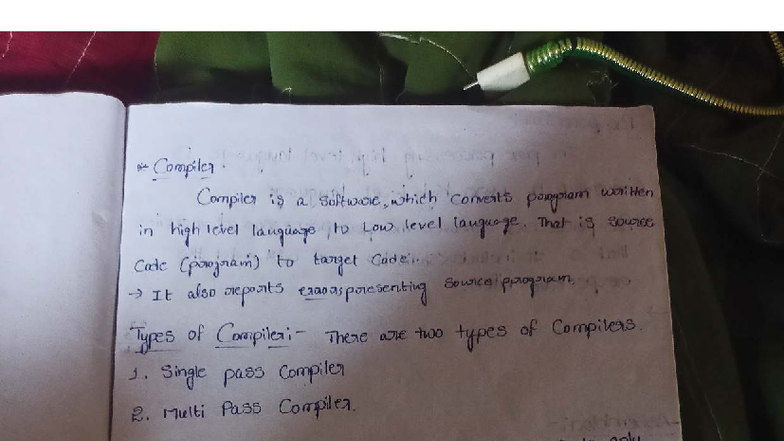 * Compiler.
Compiler is a software, which converts porogram written
in high level language, to Low level language. That is source
Code (porogram) to target Code.
→ It also reports errors poresenting source porogram.
Types of Compiler:- There are two types of Compilers.
1. Single pass Compiler
2. Multi Pass Compiler.
only